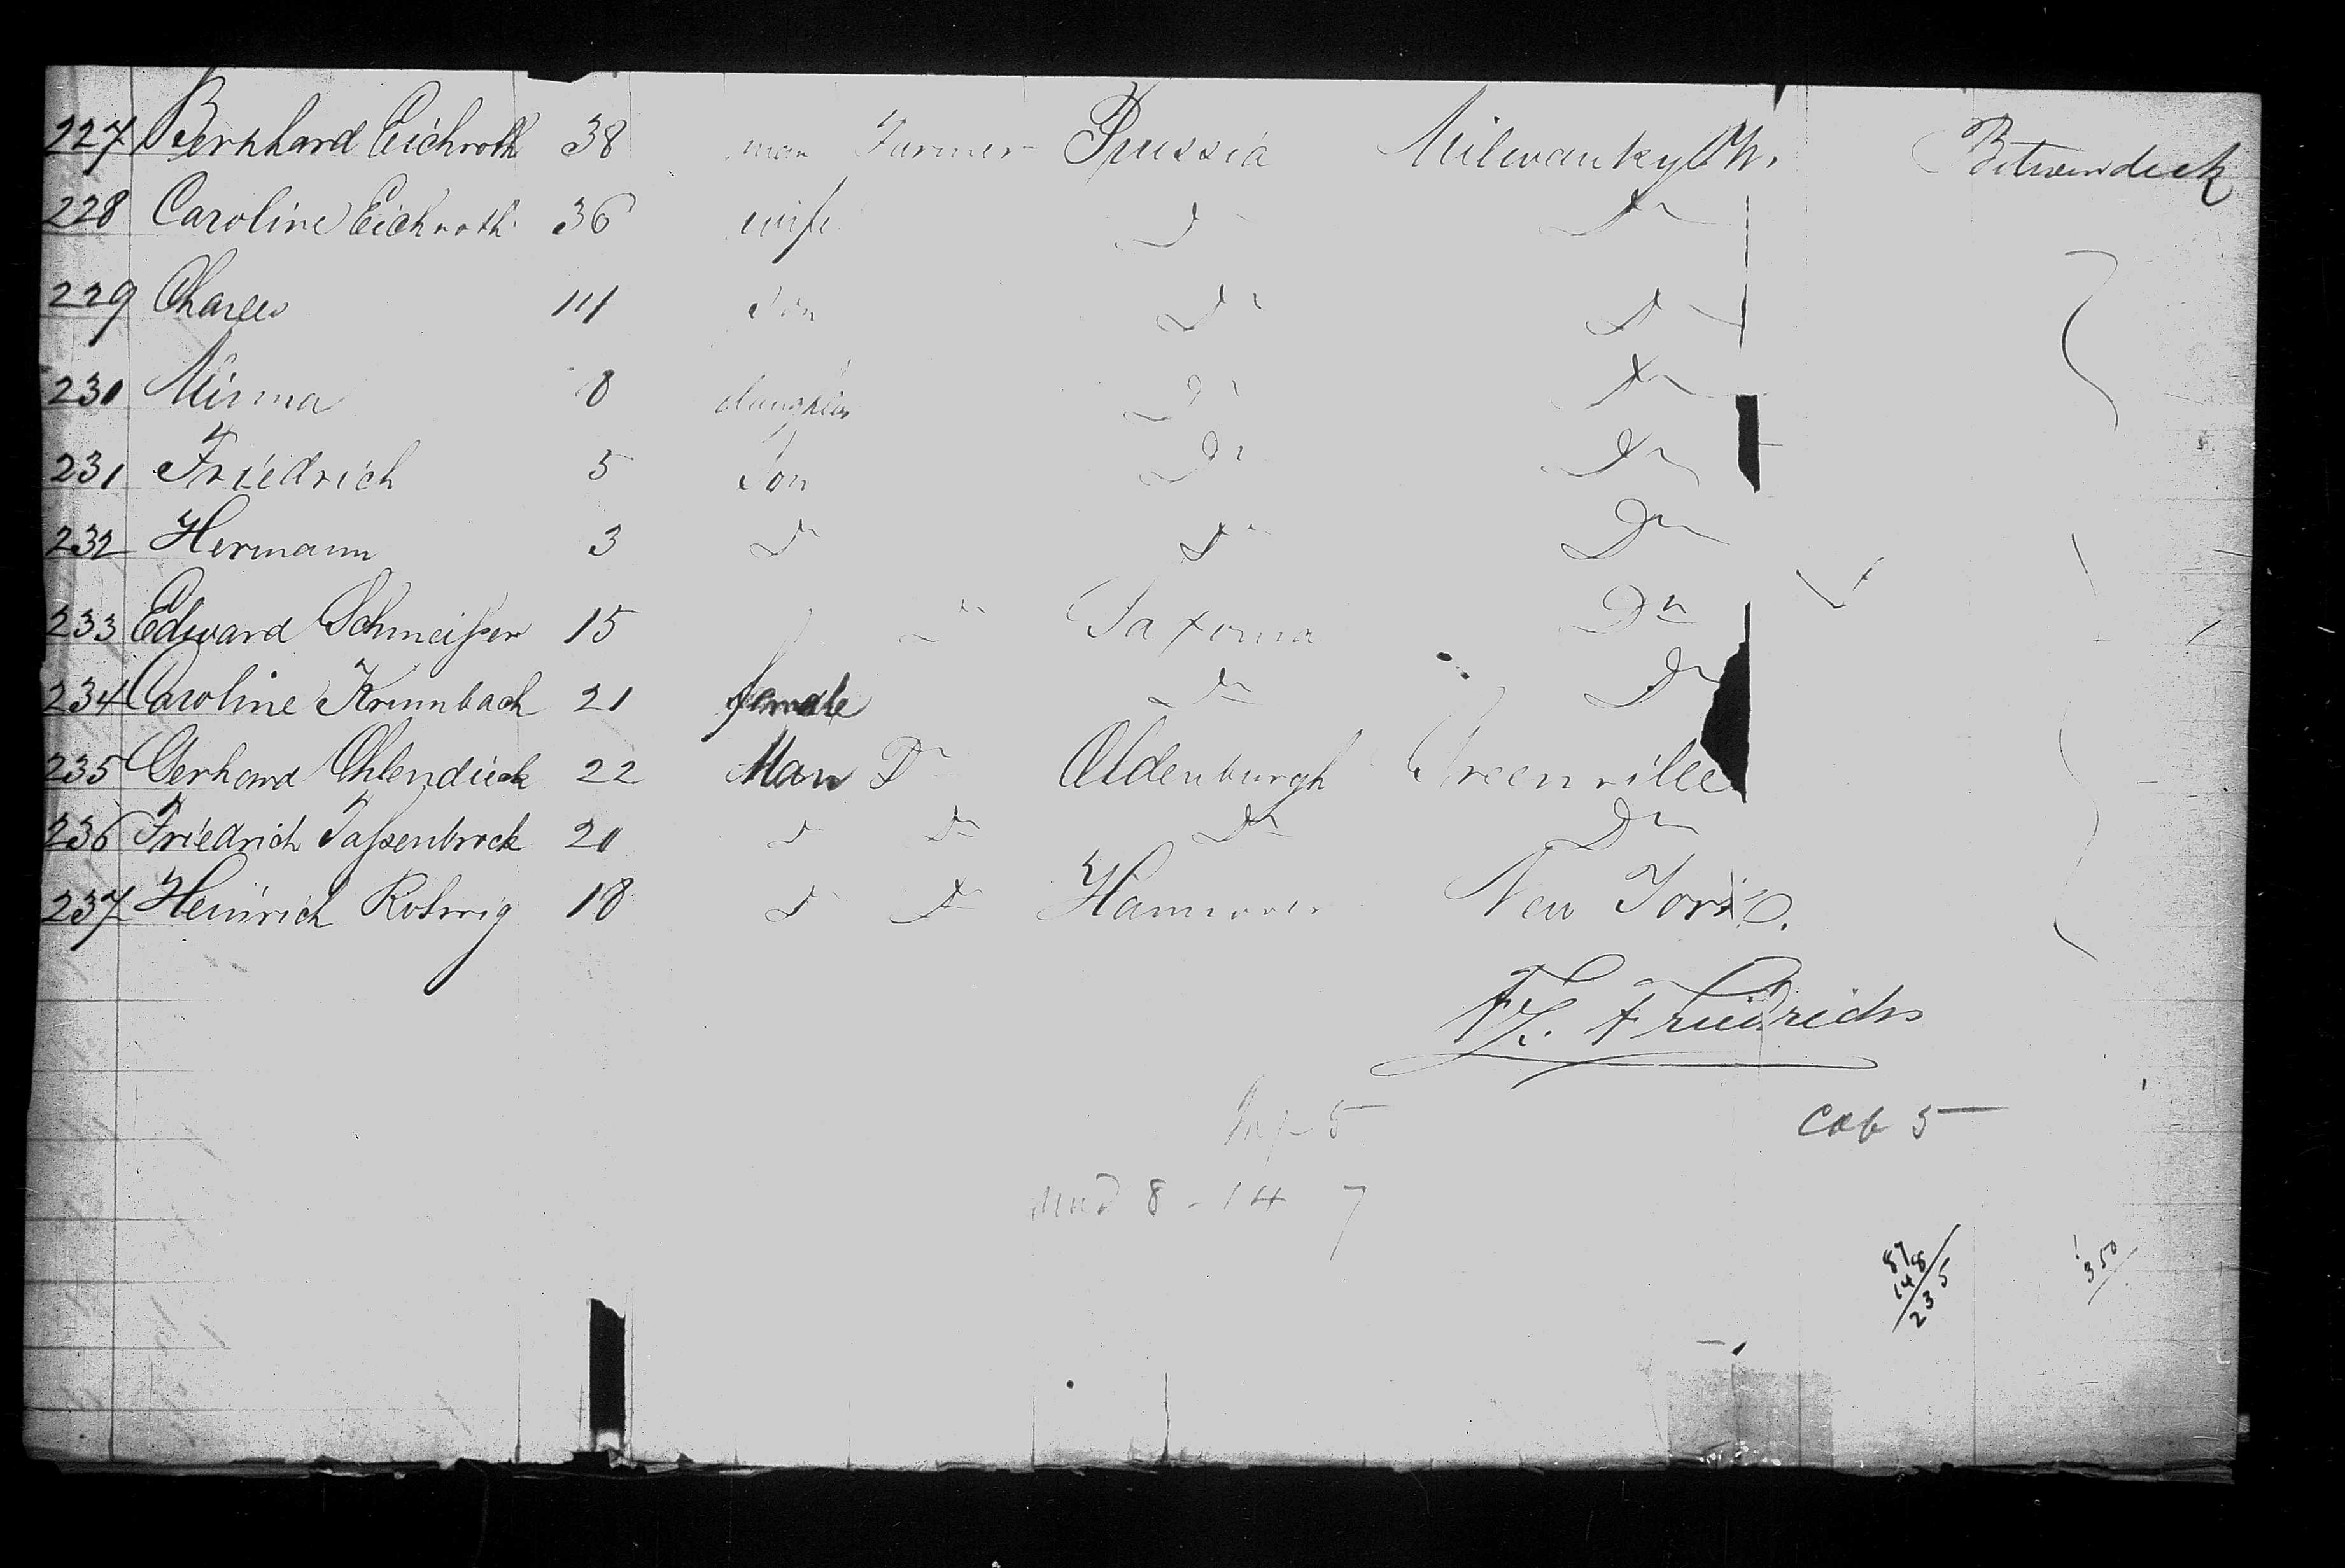 227 Bernhard Eichroth 38 man Farmer Prussia Milwauky Betweendeck
228 Caroline Eichroth 36 wife Do Do
229 Charles 11 Son Do Do
230 Minna 8 daughter Do Do
231 Friedrich 5 Son Do Do
232 Hermann 3 Do Do Do
233 Edward Schmeisser 15 Do Saxonia Do
234 Caroline Krumbach 21 female Do Do
235 Gerhard Ohlendieck 22 Man Do Oldenburgh Greenville
236 Friedrich Tassenbrock 20 Do Do Do Do
237 Heinrich Rohwig 18 Do Do Hannover New York
Friedrichs
Inf 5 Cab 5
Und 8 - 14 7
87
148
235
350